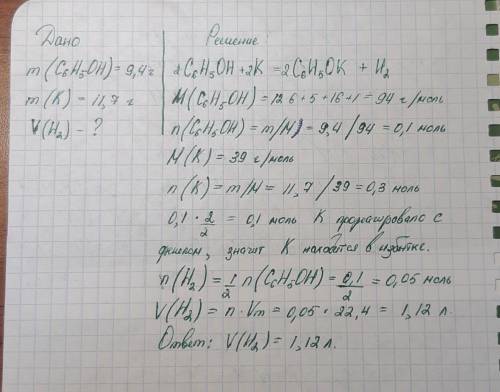 Дано
Решение:
m(C₆H₅OH)=9,4г
2C₆H₅OH+2K=2C₆H₅OK + H₂
m(K)=11,7 г
M(C₆H₅OH)=12·6+5+16+1=94 г/моль
V(H₂) - ?
n(C₆H₅OH)=m/M=9,4/94=0,1 моль
M(K)=39 г/моль
n(K)=m/M=11,7/39=0,3 моль
0,1·2/2 = 0,1 моль K прореагировало с
фенолом, значит K находится в избытке.
n(H₂)=1/2 n(C₆H₅OH)=0,1/2=0,05 моль
V(H₂)=n·Vm=0,05·22,4=1,12 л.
Ответ: V(H₂)=1,12л.